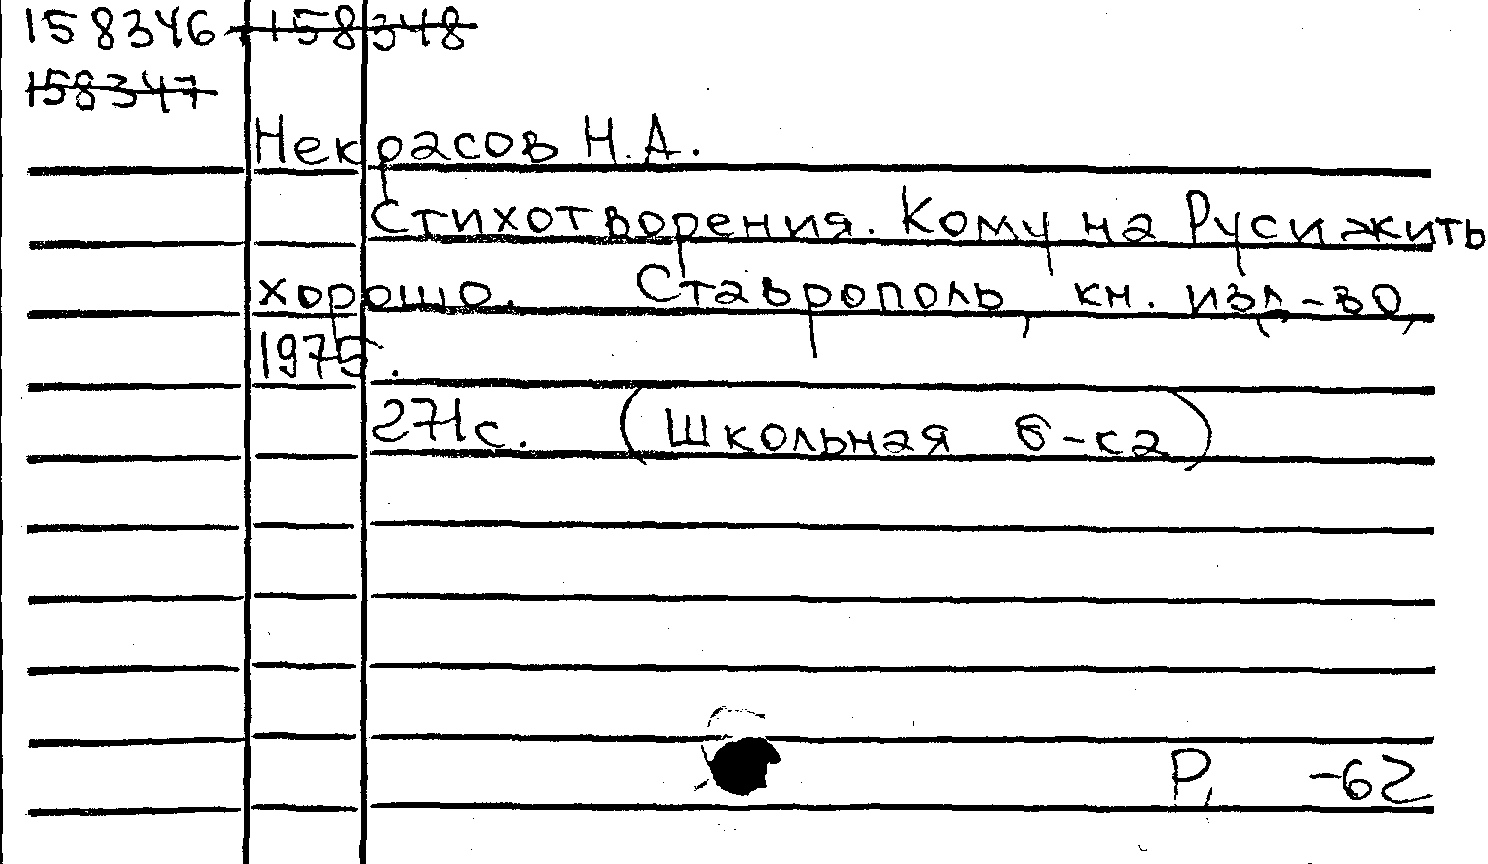 158346 158348
158347
Некрасов Н.А.
Стихотворения. Кому на Руси жить
хорошо. Ставрополь, кн. изд-во,
1975.
271с. (Школьная б-ка)
Р, -62